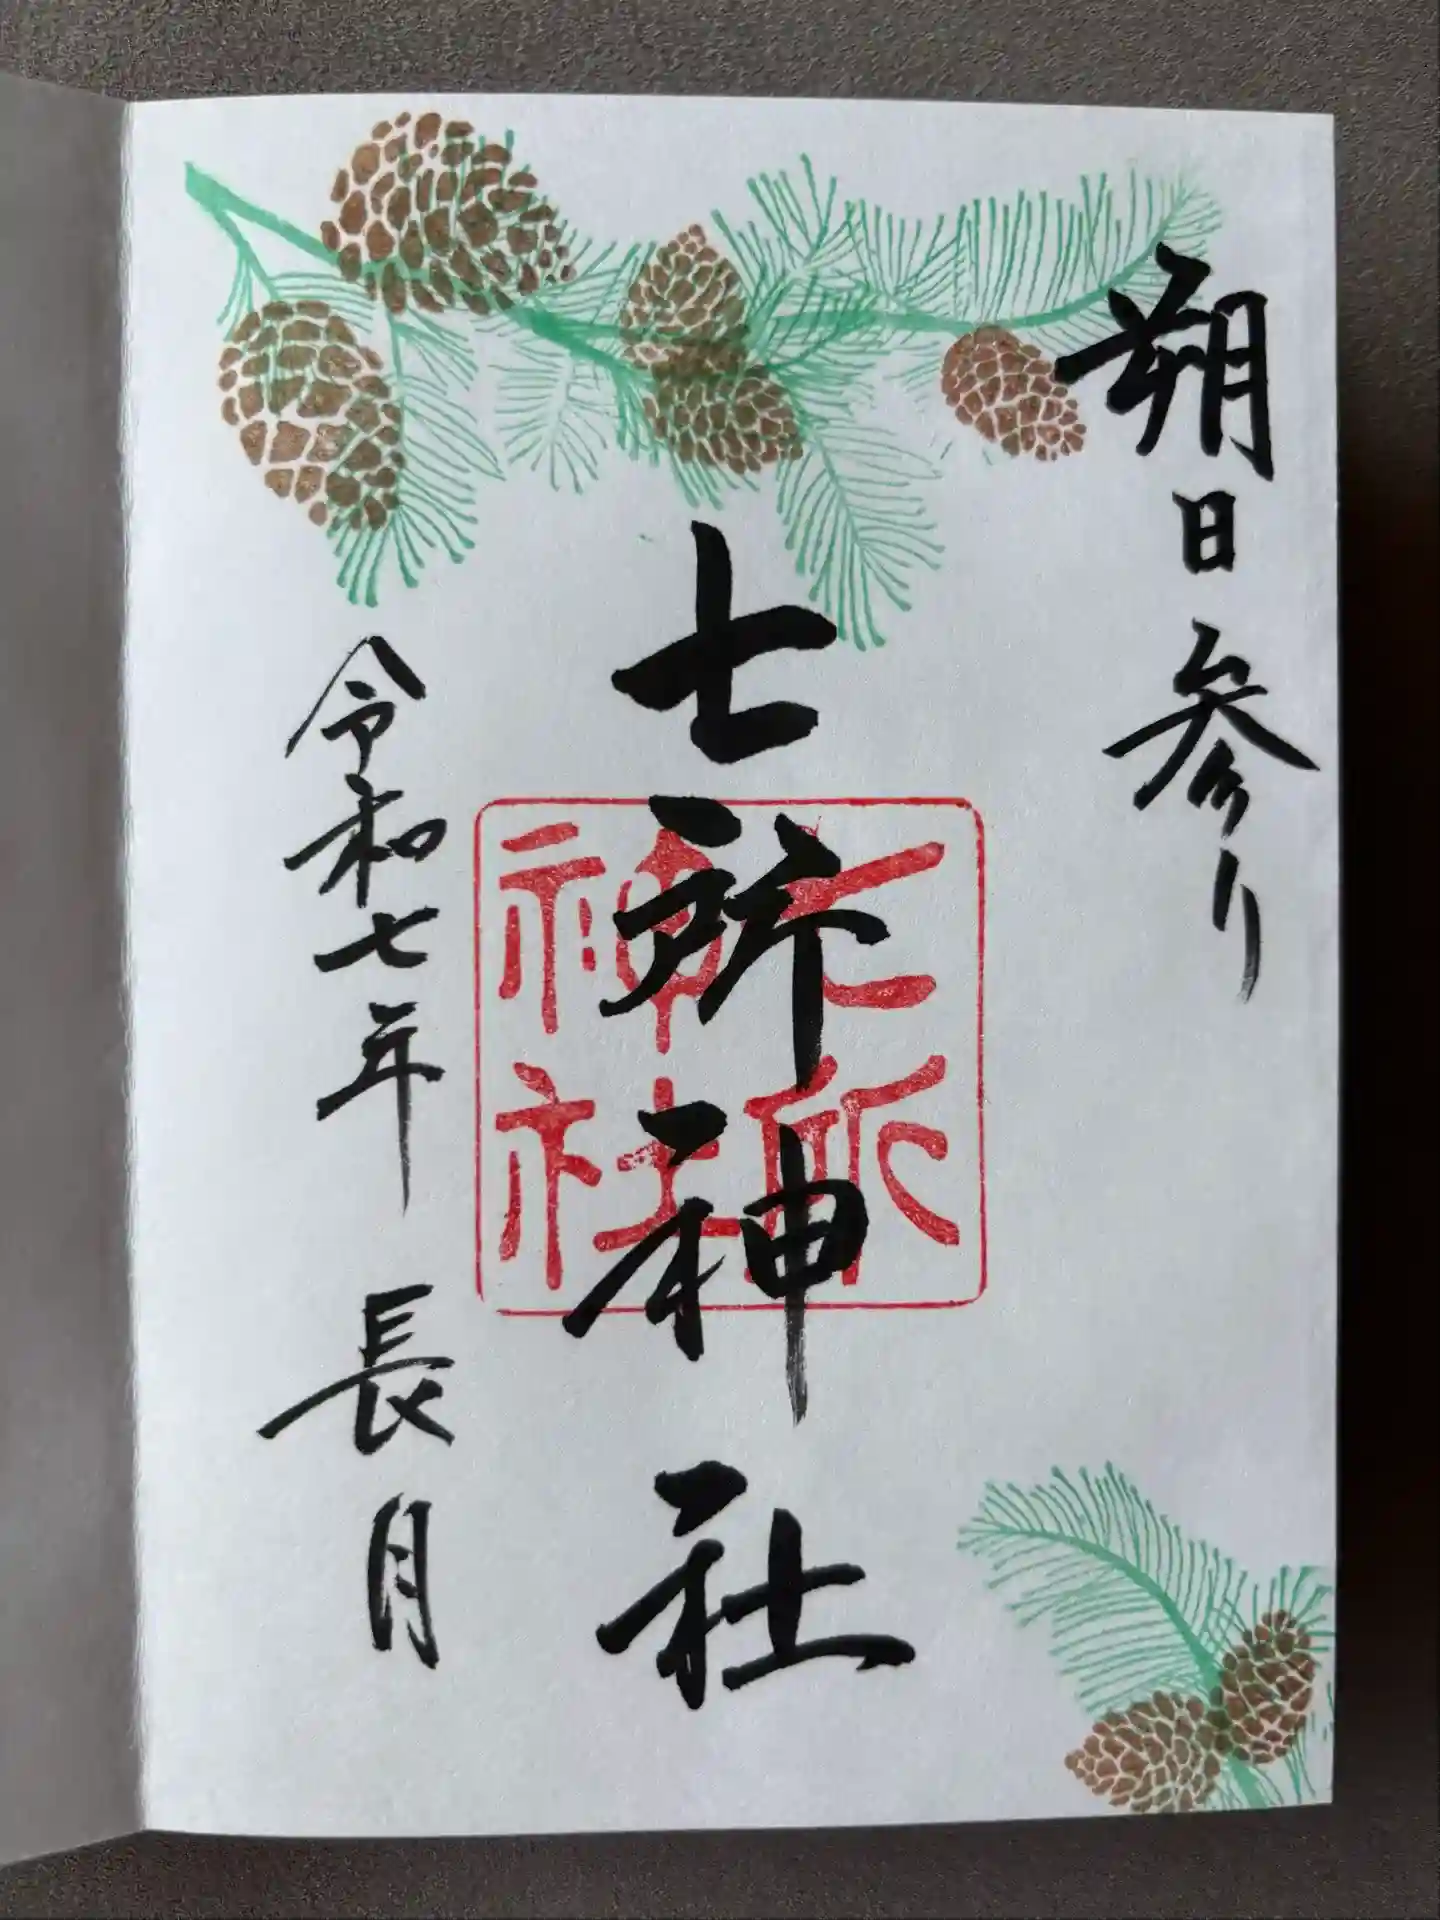 朔日参り
七所神社
七所
神社
令和七年 長月